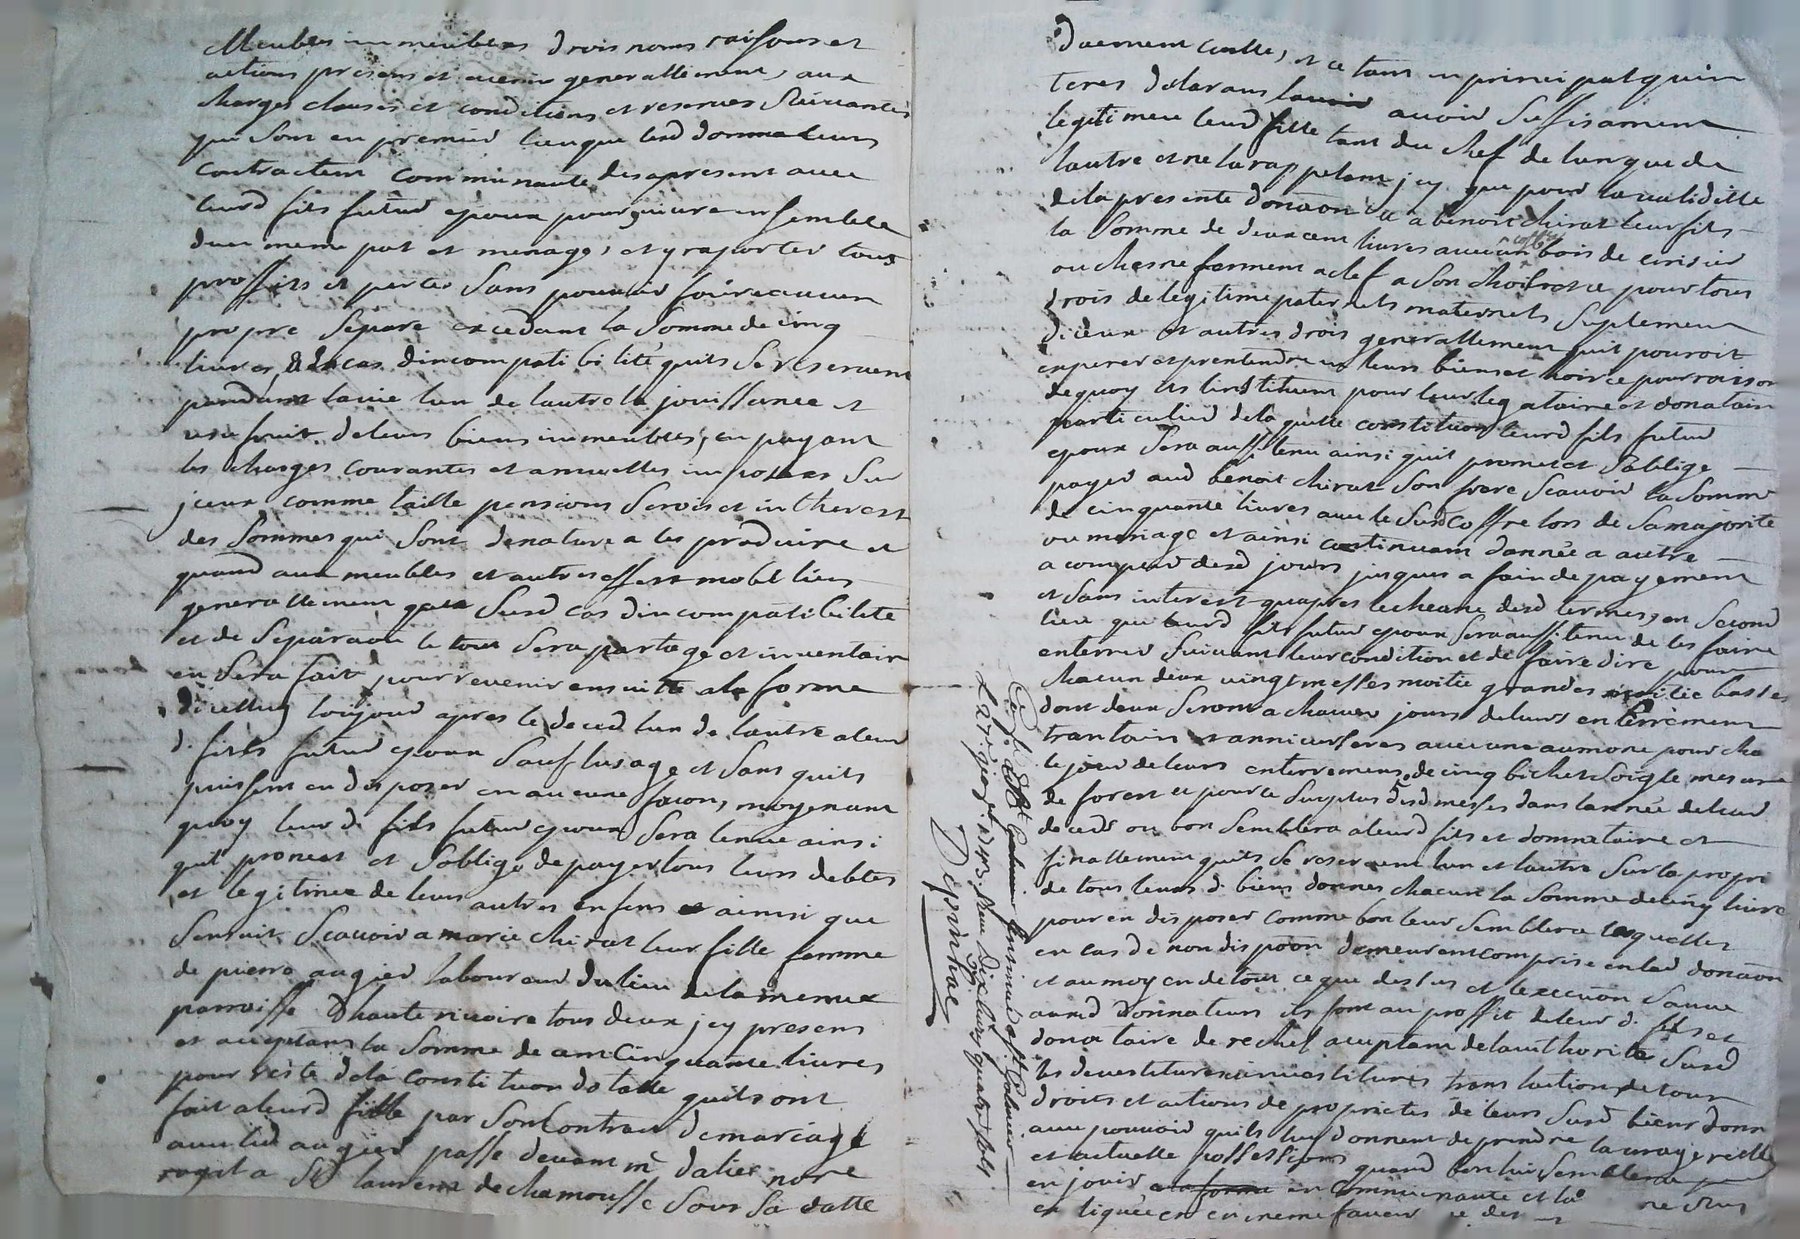 Meubles immeubles drois noms raisons et
actions presens et avenir generallement, aux
charges clauses et conditions et reserves suivantes
qui sont en premier lieu que lesd donnateurs
contractent communauté des apresent avec
leurd fils futur epoux pour vivre ensemble
dun meme pat et menage, et y raporter tous
proffits et pertes sans pouvoir faire aucun
propre separé excedant la somme de cinq
livres, cas dincompatibilité quils se reservent
pendant la vie lun de lautre la jouissance et
usufruit de leurs biens immeubles, en payant
les charges courantes et annuelles imposees sur
jceux comme taille pensions servis et intherest
des sommes qui sont de nature a les produire et
quand aux meubles et autres effest mobilliers
generallement susd cas dincompatibilité
et de separaon le tout sera partagé et inventaire
en sera fait pour revenir ensuitte a la forme
dicelluy toujour apres le deced lun de lautre aleur
d. fils futur epoux sauf lusage et sans quils
puissent en disposer en aucune facon, moyenant
quoy leur d. fils futur epoux sera tenue ainsi
quil promet et soblige de payer tous leurs debtes
et legitimes de leurs autres enfens et ainsi que
sensuit scavoir a marie chirat leur fille femme
de pierre augier laboureur du lieu de la meme
parroisse dhaute rivoire tous deux jcy presens
et acceptans la somme de cent cinquante livres
pour reste de la constituon dotalle quils ont
fait aleurd fille par son contrac de mariage
avec led augier passé devant me dalier nore
royal a st laurent de chamousse sous sa datte
duement contte, et ce tant en principal quin
teres declarans avoir suffisament
legitimée leurd fille tant du chef de lun que de
lautre et ne la rappelant jcy que pour la validitté
de la presente donaon a benoit chirat leur fils
la somme de deux cent livres avec un coffre bois de cerisier
ou chesne fermant a clef a son choix et ce pour tous
drois de legitime paternels maternels suplement
diceux et autres drois generallement quil pouroit
esperer et prentendre en leurs biens et hoirie pour raison
de quoy ils linstituent pour leur legataire et donataire
particulier de laquelle constituon leurd fils futur
epoux sera aussi tenu ainsi quil promet et soblige
payer aud benoit chirat son frere scavoir la somme
de cinquante livres avec le susd coffre lors de sa majorité
ou mariage et ainsi continuant dannée a autre
a compter desd jours jusques a fain de payement
et sans interest quapres lecheance desd termes, en second
lieu que leurd fils futur epoux sera aussi tenu de les faire
enterrer suivant leur condition et de faire dire pour
chacun deux vingt messes moitié grandes moitié basses
dont deux seront a chacun jours de leurs enterrement
trantain et anniverseres avec une aumone pour cha
le jour de leurs enterremens de cinq bichet soigle mesure
de forest et pour le surplus desd messes dans lannée de leur
deceds ou bon semblera aleurd fils et donnataire et
finallement quils se reservent lun et lautre sur la propre
de tous leurs d. biens donnés chacun la somme de cinq livre
pour en disposer comme bon leur semblera lesquelles
en cas de non dispoon demeureront comprise en lad donaon
et au moyen de tout ce que dessus et lexecuon sauve
auxd donnateurs ils font au proffit de leur d. fils et
donataire de rechef acceptant de lauthorité susd
les devestitures investitures translation de tous
droits et actions de proprietes de leurs susd biens donn
avec pouvoir quils luy donnent de prendre la vraye reelle
et actuelle possession quand bon luy semblera
en jouir en communauté et la
meme faveur
Lay. 1783. Reçu dix livres quatre sols
Desvinhac